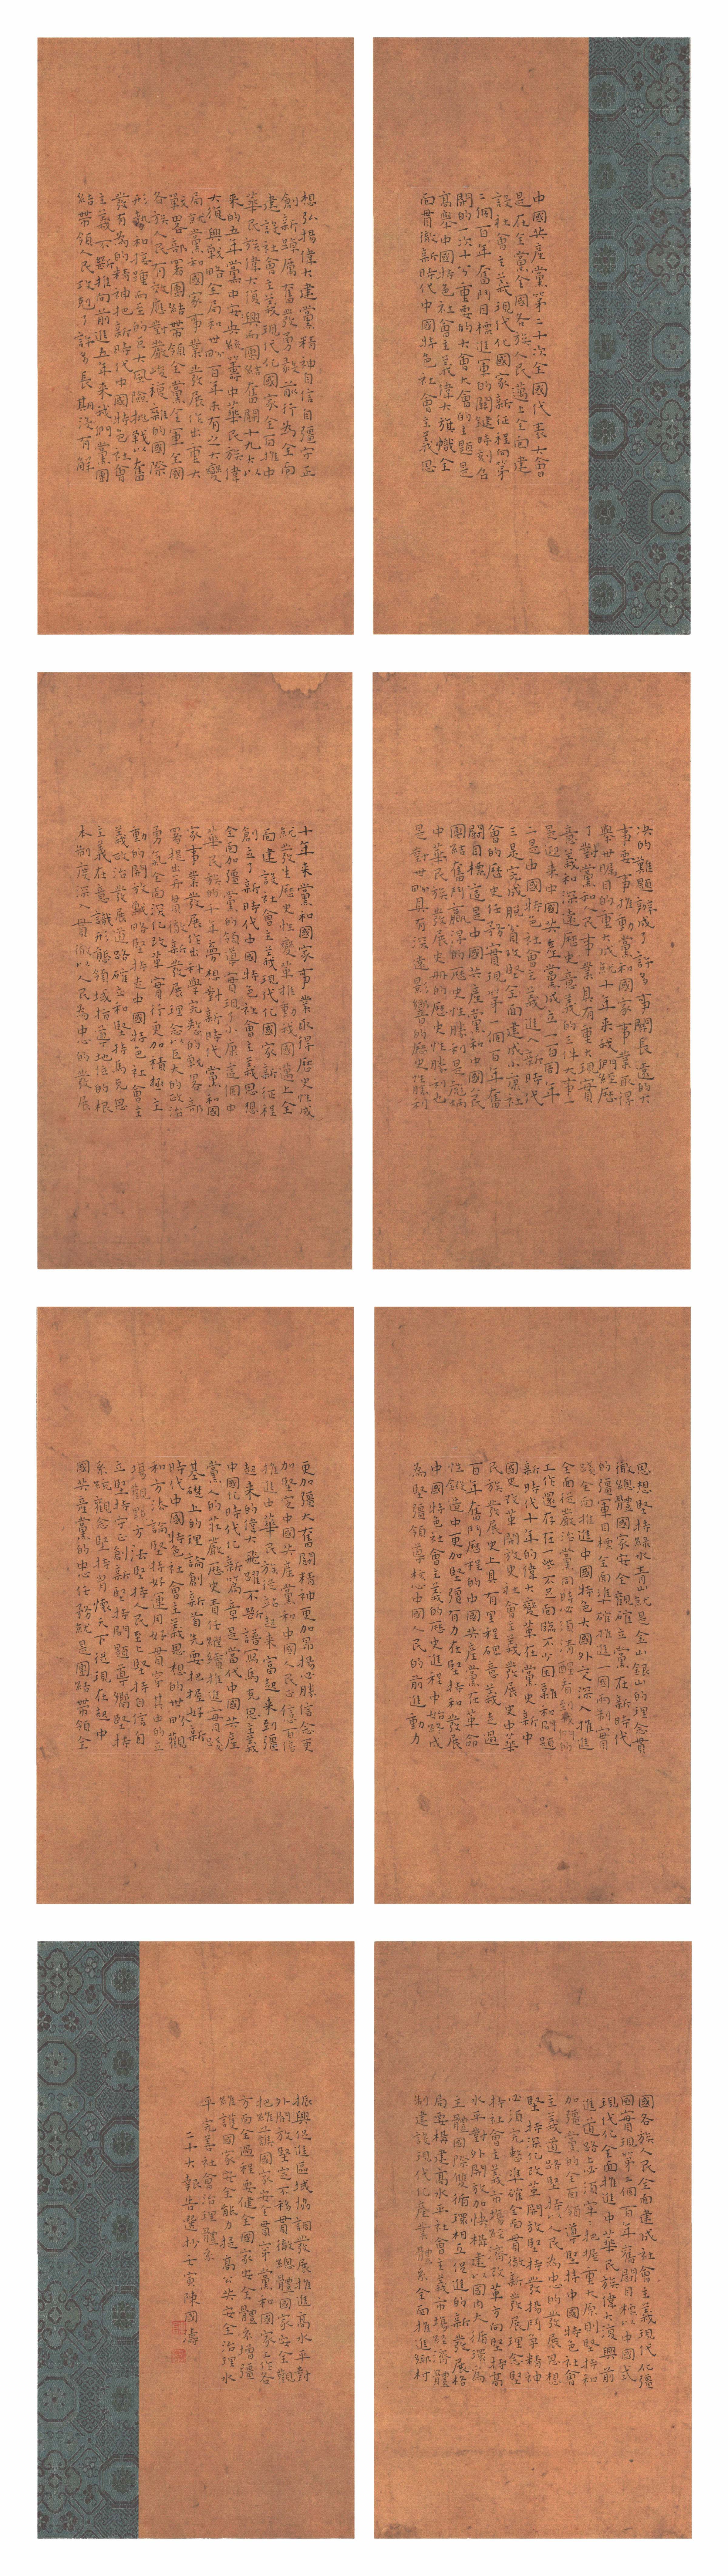 中國共産黨第二十次全國代表大會
是在全黨全國各族人民邁上全面建
設社會主義現代化國家新征程向第
二個百年奮鬥目標進軍的關鍵時刻召
開的一次十分重要的大會大會的主題是
高舉中國特色社會主義偉大旗幟全
面貫徹新時代中國特色社會主義思
想弘揚偉大建黨精神自信自彊守正
創新踔厲奮發勇毅前行為全面
建設社會主義現代化國家全面推進中
華民族偉大復興而團結奮鬭十九大以
來的五年黨中央統籌中華民族偉
大復興戰略全局和世界百年未有之大變
局就黨和國家事業發展作出重大
戰略部署團結帶領全黨全軍全國
各族人民有效應對嚴峻複雜的國際
形勢和接踵而至的巨大風險挑戰以奮
發有為的精神把新時代中國特色社會
主義不斷推向前進五年來我們黨團
結帶領人民攻克了許多長期沒有解
决的難題辦成了許多事關長遠的大
事要事推動黨和國家事業取得
舉世矚目的重大成就十年来我們經歷
了對黨和人民事業具有重大現實
意義和深遠歷史意義的三件大事一
是迎来中國共産黨成立一百周年
二是中國特色社會主義進入新時代
三是完成脱貧攻堅全面建成小康社
會的歷史任務實現第一個百年奮
鬭目標這是中國共産黨和中國人民
團結奮鬥贏得的歷史性勝利是彪炳
中華民族發展史册的歷史性勝利也
是對世界具有深遠影響的歷史性勝利
十年来黨和國家事業取得歷史性成
就發生歷史性變革推動我國邁上全
面建設社會主義現代化國家新征程
創立了新時代中國特色社會主義思想
全面加彊黨的領導實現了小康這個中
華民族的千年夢想對新時代黨和國
家事業發展作出科學完整的戰略部
署提出并貫徹新發展理念以巨大的政治
勇氣全面深化改革實行更加積極主
動的開放戰略堅持走中國特色社會主
義政治發展道路確立和堅持馬克思
主義在意識形態領域指導地位的根
本制度深入貫徹以人民為中心的發展
思想堅持緑水青山就是金山銀山的理念貫
徹總體國家安全觀確立黨在新時代
的彊軍目標全面準確推進一國兩制實
踐全面推進中國特色大國外交深入推進
全面從嚴治黨同時必須清醒看到我們的
工作還存在一些不足面臨不少困難和問題
新時代十年的偉大變革在黨史新中
國史改革開放史社會主義發展史中華
民族發展史上具有里程碑意義走過
百年奮鬥歷程的中國共産黨在革命
性鍛造中更加堅彊有力在堅持和發展
中國特色社會主義的歷史進程中始終成
為堅彊領導核心中國人民的前進動力
更加彊大奮鬭精神更加昂揚必勝信念更
加堅定中國共産黨和中國人民正信百倍
推進中華民族從站起来富起来到彊
起来的偉大飛躍不斷譜寫馬克思主義
中國化時代化新篇章是當代中國共産
黨人的莊嚴歷史責任繼續推進實踐
基礎上的理論創新首先要把握好新
時代中國特色社會主義思想的世界觀
和方法論堅持好運用好貫穿其中的立
場觀點方法堅持人民至上堅持自信自
立堅持守正創新堅持問題導嚮堅持
系統觀念堅持胷懷天下從現在起中
國共産黨的中心任務就是團結帶領全
國各族人民全面建成社會主義現代化彊
國實現第二個百年奮鬭目標以中國式
現代化全面推進中華民族偉大復興前
進道路上必須牢牢把握重大原則堅持和
加彊黨的全面領導堅持中國特色社會
主義道路堅持以人民為中心的發展思想
堅持深化改革開放堅持發揚鬥爭精神
必須完整準確全面貫徹新發展理念堅
持社會主義市場經濟改革方向堅持高
水平對外開放加快構建以國内大循環為
主體國際雙循環相互促進的新發展格
局要構建高水平社會主義市場經濟體
制建設現代化産業體系全面推進鄉村
振興促進區域協調發展推進高水平對
外開放堅定不移貫徹總體國家安全觀
把維護國家安全貫穿黨和國家工作各
方面全過程要健全國家安全體系增彊
維護國家安全能力提高公共安全治理水
平完善社會治理體系
二十大報告選抄壬寅陳國濤